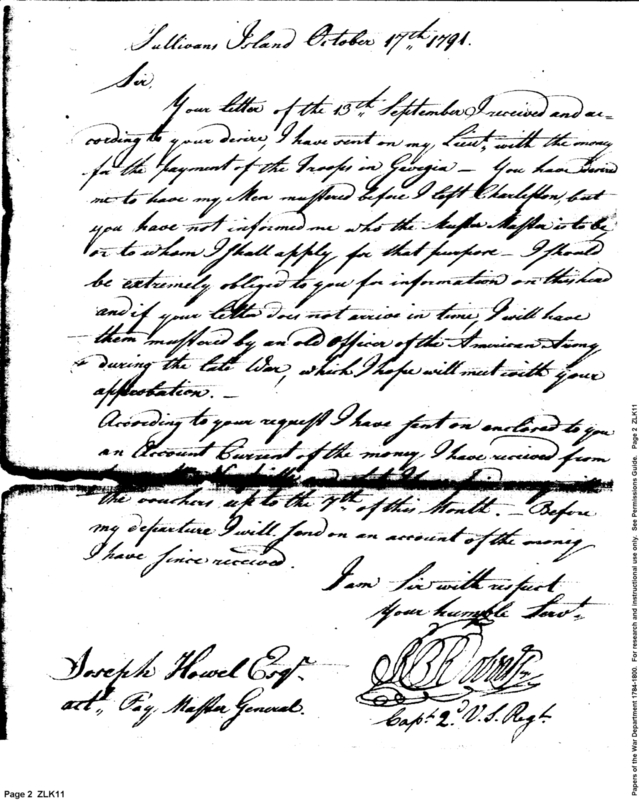 Sullivans Island October 17th 1791.
Sir,
Your letter of the 13th September I received and ac=
cording to your desire, I have sent on my Lieut. with the money
for the payment of the Troops in Georgia — You have desired
me to have my Men mustered before I left Charleston, but
you have not informed me who the Muster Master is to be
or to whom I shall apply for that purpose — I should
be extremely obliged to you for information on this head
and if your letter does not arrive in time, I will have
them mustered by an old officer of the American Army
during the late War, which I hope will meet with your
approbation. —
According to your request I have sent on enclosed to you
an Account Current of the money, I have received from
the vouchers up to the 7th of this Month. — Before
my departure I will send on an account of the money
I have since received.
I am Sir with respect
Your humble Servt.
Joseph Howel Esqr.
actg. Pay Master General.
Capt. 2d U.S. Regt.
Page 2 ZLK11
Papers of the War Department 1784-1800. For research and instructional use only. See Permissions Guide. Page 2 ZLK11